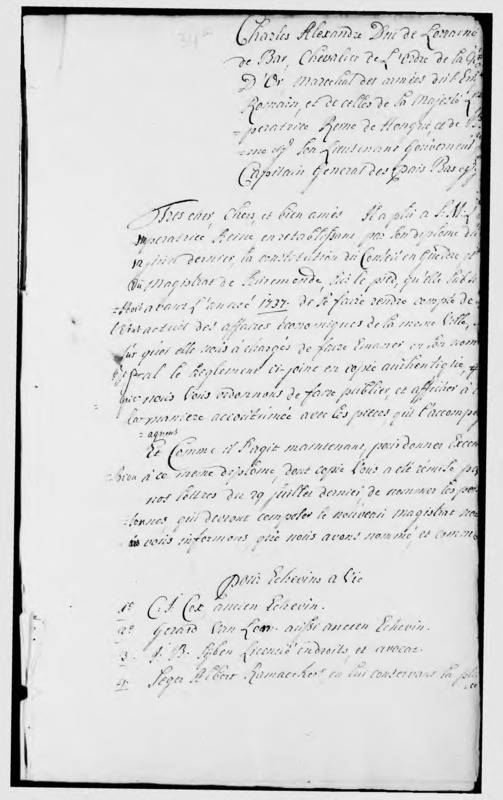 Charles Alexandre Duc de Lorraine
de Bar, Chevalier de L'ordre de la
D'Or Marechal des armées du
Romain, et de celles de la Majesté
=peratrice Reine de Hongrie, et de
Son Lieutenant Gouverneur
Capitain General des Païs Bas
Tres cher, Chers, et bien amés Il a plû a S. M.
Imperatrice Reine en retablissant par son diplome du
12 dernier, la constitution du Conseil en Gueldre et
du Magistrat de Ruremonde, sur le pied, qu'elle
=stoit avant L'année 1737. de se faire rendre compte de
l'etat actuel des affaires œconomiques de la meme Ville,
sur quoi elle nous a chargés de faire emaner en son nom
le Reglement ci-joint en copie authentique,
que nous vous ordonnons de faire publier, et afficher à
la maniere accoutumée avec les pieces, qui l'accomp
=agnent
Et Comme il s'agit maintenant, pour donner Execu
=tion à ce meme diplome, dont copie Vous a eté remise, par
nos lettres du 29 juillet dernier de nommer les per
=sonnes qui devront composer le nouveau magistrat
vous informons que nous avons nommé, et comme
Pour Echevins a Vie
1º C. J. Cox, ancien Echevin.
2º Gerard Van aussi ancien Echevin.
3. J. B. Licencié en droits, et avocat.
4. Seger Albert Ramaeckers en lui conservant la